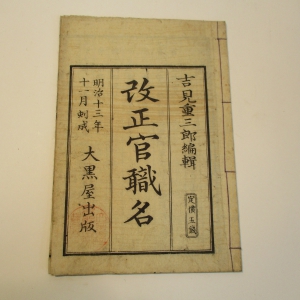 吉見重三郎編輯
定價五錢
改正官職名
明治十三年
十一月刻成
大黒屋出版